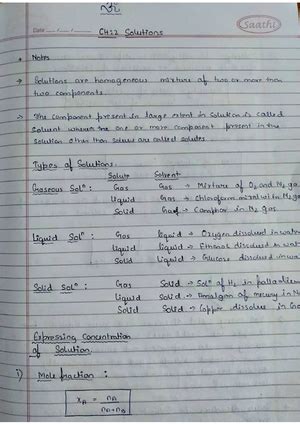 Date
Saathi
CH:2 Solutions
Notes
Solutions are homogeneous mixture of two or more than
two components.
The component present in large extent in solution is called
solvent whereas the one or more component present in the
solution other than solvent are called solutes.
Types of Solutions.
Solute Solvent
Gaseous Solⁿ : Gas Gas → Mixture of O₂ and N₂ ga
liquid Gas → Chloroform mixed with N₂ g
Solid Gas → Camphor in N₂ gas.
Liquid Solⁿ : Gas liquid → Oxygen dissolved in wate
liquid liquid → Ethanol dissolved in wat
Solid liquid → Glucose dissolved in wa
Solid Solⁿ : Gas Solid → Solⁿ of H₂ in palladium
Liquid Solid → Amalgam of mercury in N
Solid Solid → Copper dissolve in Go
Expressing Concentration
of Solution.
i) Mole fraction :
xA = nA / nA+nB